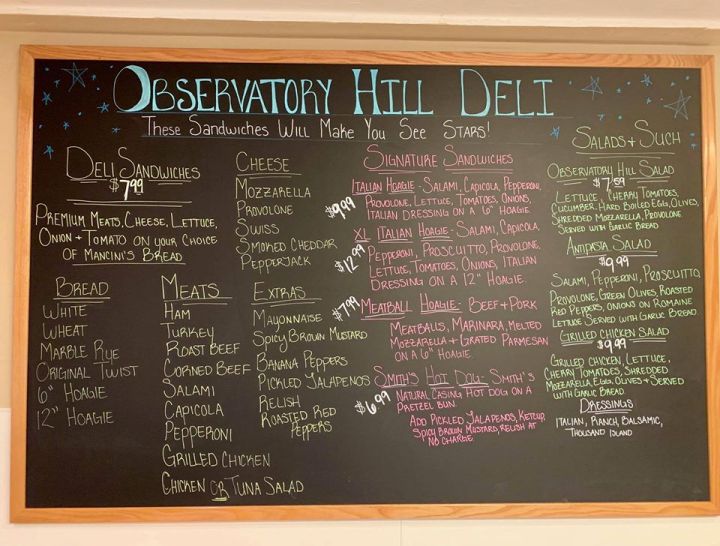 OBSERVATORY HILL DELI
THESE SANDWICHES WILL MAKE YOU SEE STARS!
DELI SANDWICHES
$7.99
PREMIUM MEATS, CHEESE, LETTUCE,
ONION + TOMATO ON YOUR CHOICE
OF MANCINI'S BREAD
BREAD
WHITE
WHEAT
MARBLE RYE
ORIGINAL TWIST
6" HOAGIE
12" HOAGIE
MEATS
HAM
TURKEY
ROAST BEEF
CORNED BEEF
SALAMI
CAPICOLA
PEPPERONI
GRILLED CHICKEN
CHICKEN OR TUNA SALAD
CHEESE
MOZZARELLA
PROVOLONE
SWISS
SMOKED CHEDDAR
PEPPERJACK
EXTRAS
MAYONNAISE
SPICY BROWN MUSTARD
BANANA PEPPERS
PICKLED JALAPENOS
RELISH
ROASTED RED
PEPPERS
SIGNATURE SANDWICHES
ITALIAN HOAGIE - SALAMI, CAPICOLA, PEPPERONI,
$9.99
PROVOLONE, LETTUCE, TOMATOES, ONIONS,
ITALIAN DRESSING ON A 6" HOAGIE
XL ITALIAN HOAGIE - SALAMI, CAPICOLA
$12.99
PEPPERONI, PROSCUITTO, PROVOLONE,
LETTUCE, TOMATOES, ONIONS, ITALIAN
DRESSING ON A 12" HOAGIE.
$7.99
MEATBALL HOAGIE - BEEF + PORK
MEATBALLS, MARINARA, MELTED
MOZZARELLA + GRATED PARMESAN
ON A 6" HOAGIE.
SMITH'S HOT DOG - SMITH'S
$6.99
NATURAL CASING HOT DOG ON A
PRETZEL BUN.
ADD PICKLED JALAPENOS, KETCHUP,
SPICY BROWN MUSTARD, RELISH AT
NO CHARGE
SALADS + SUCH
OBSERVATORY HILL SALAD
LETTUCE, CHERRY TOMATOES,
CUCUMBER, HARD BOILED EGG, OLIVES,
SHREDDED MOZZARELLA, PROVOLONE
SERVED WITH GARLIC BREAD
ANTIPASTA SALAD
$9.99
SALAMI, PEPPERONI, PROSCUITTO
PROVOLONE, GREEN OLIVES, ROASTED
RED PEPPERS, ONIONS ON ROMAINE
LETTUCE SERVED WITH GARLIC BREAD.
GRILLED CHICKEN SALAD
$9.99
GRILLED CHICKEN, LETTUCE,
CHERRY TOMATOES, SHREDDED
MOZZARELLA, EGG, OLIVES + SERVED
WITH GARLIC BREAD
DRESSINGS
ITALIAN, RANCH, BALSAMIC,
THOUSAND ISLAND